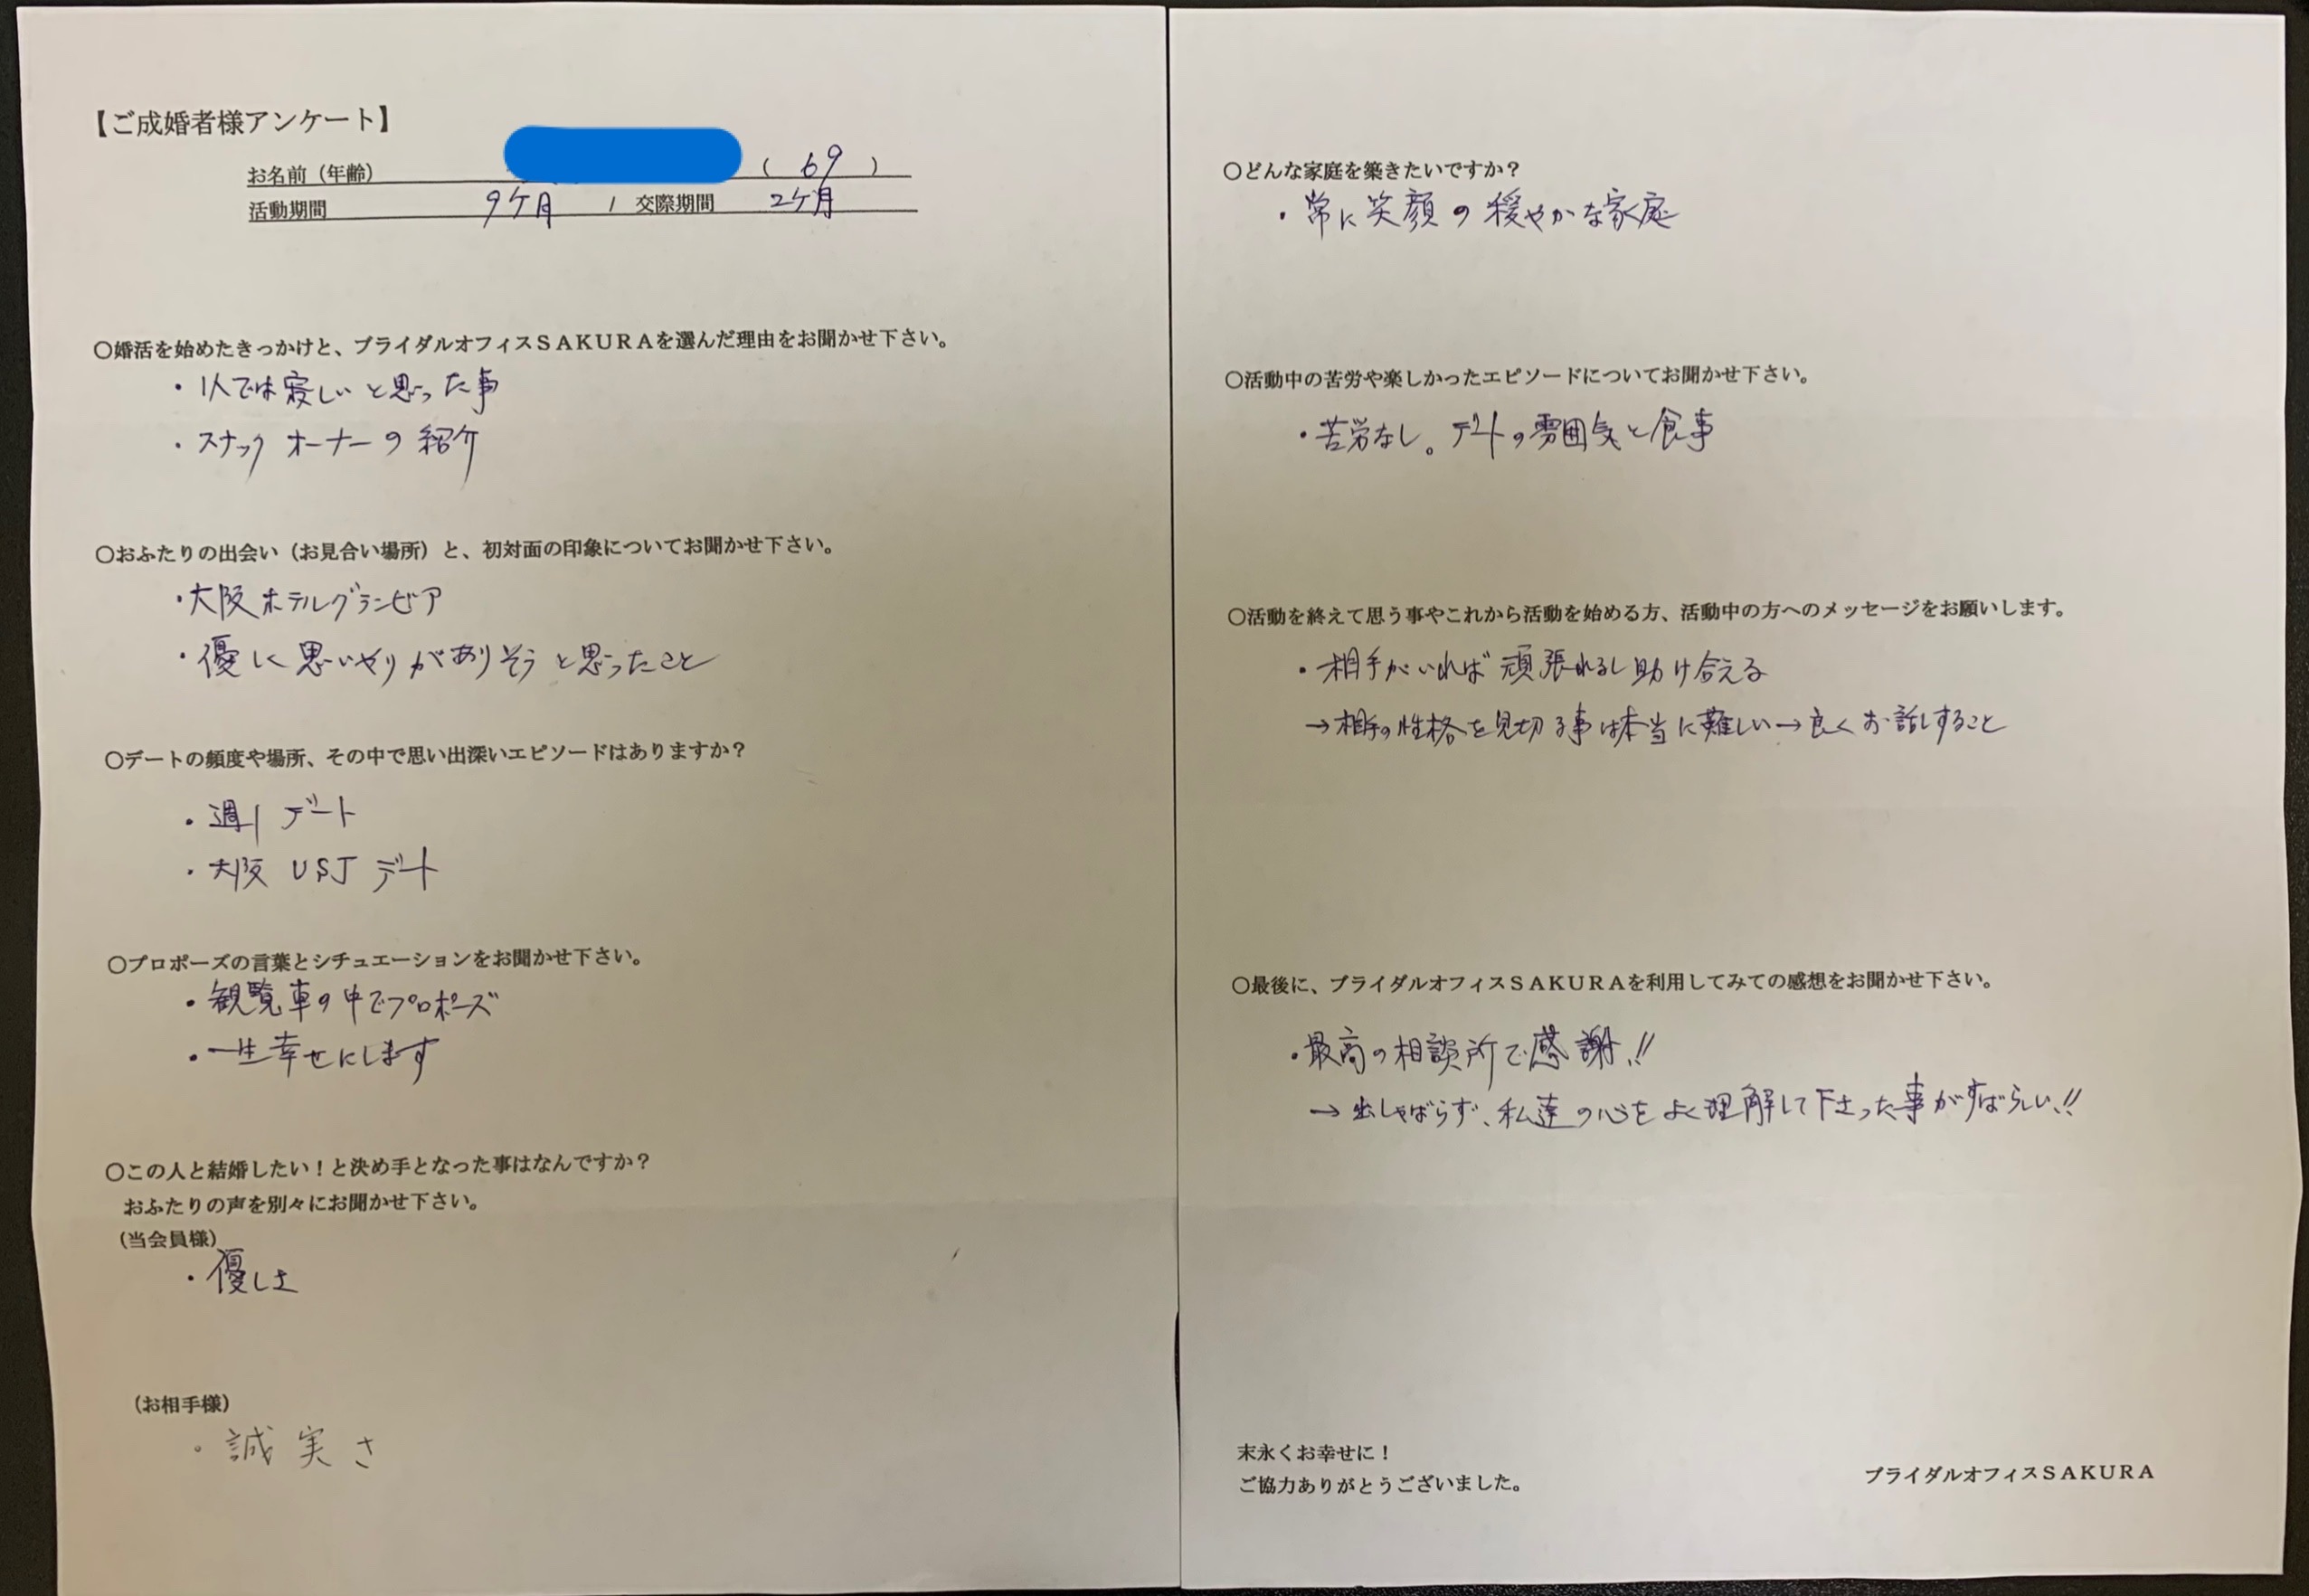 【ご成婚者様アンケート】
お名前（年齢） （ 69 ）
活動期間 9ケ月 / 交際期間 2ケ月
○婚活を始めたきっかけと、ブライダルオフィスＳＡＫＵＲＡを選んだ理由をお聞かせ下さい。
・1人では寂しいと思った事
・スナックオーナーの紹介
○おふたりの出会い（お見合い場所）と、初対面の印象についてお聞かせ下さい。
・大阪ホテルグランビア
・優しく思いやりがありそうと思ったこと
○デートの頻度や場所、その中で思い出深いエピソードはありますか？
・週1デート
・大阪USJデート
○プロポーズの言葉とシチュエーションをお聞かせ下さい。
・観覧車の中でプロポーズ
・一生幸せにします
○この人と結婚したい！と決め手となった事はなんですか？
おふたりの声を別々にお聞かせ下さい。
（当会員様）
・優しさ
（お相手様）
・誠実さ
○どんな家庭を築きたいですか？
・常に笑顔の穏やかな家庭
○活動中の苦労や楽しかったエピソードについてお聞かせ下さい。
・苦労なし。デートの雰囲気と食事
○活動を終えて思う事やこれから活動を始める方、活動中の方へのメッセージをお願いします。
・相手がいれば頑張れるし助け合える
→相手の性格を見切る事は本当に難しい→良くお話しすること
○最後に、ブライダルオフィスＳＡＫＵＲＡを利用してみての感想をお聞かせ下さい。
・最高の相談所で感謝!!
→出しゃばらず、私達の心をよく理解して下さった事がすばらしい!!
末永くお幸せに！
ご協力ありがとうございました。
ブライダルオフィスＳＡＫＵＲＡ